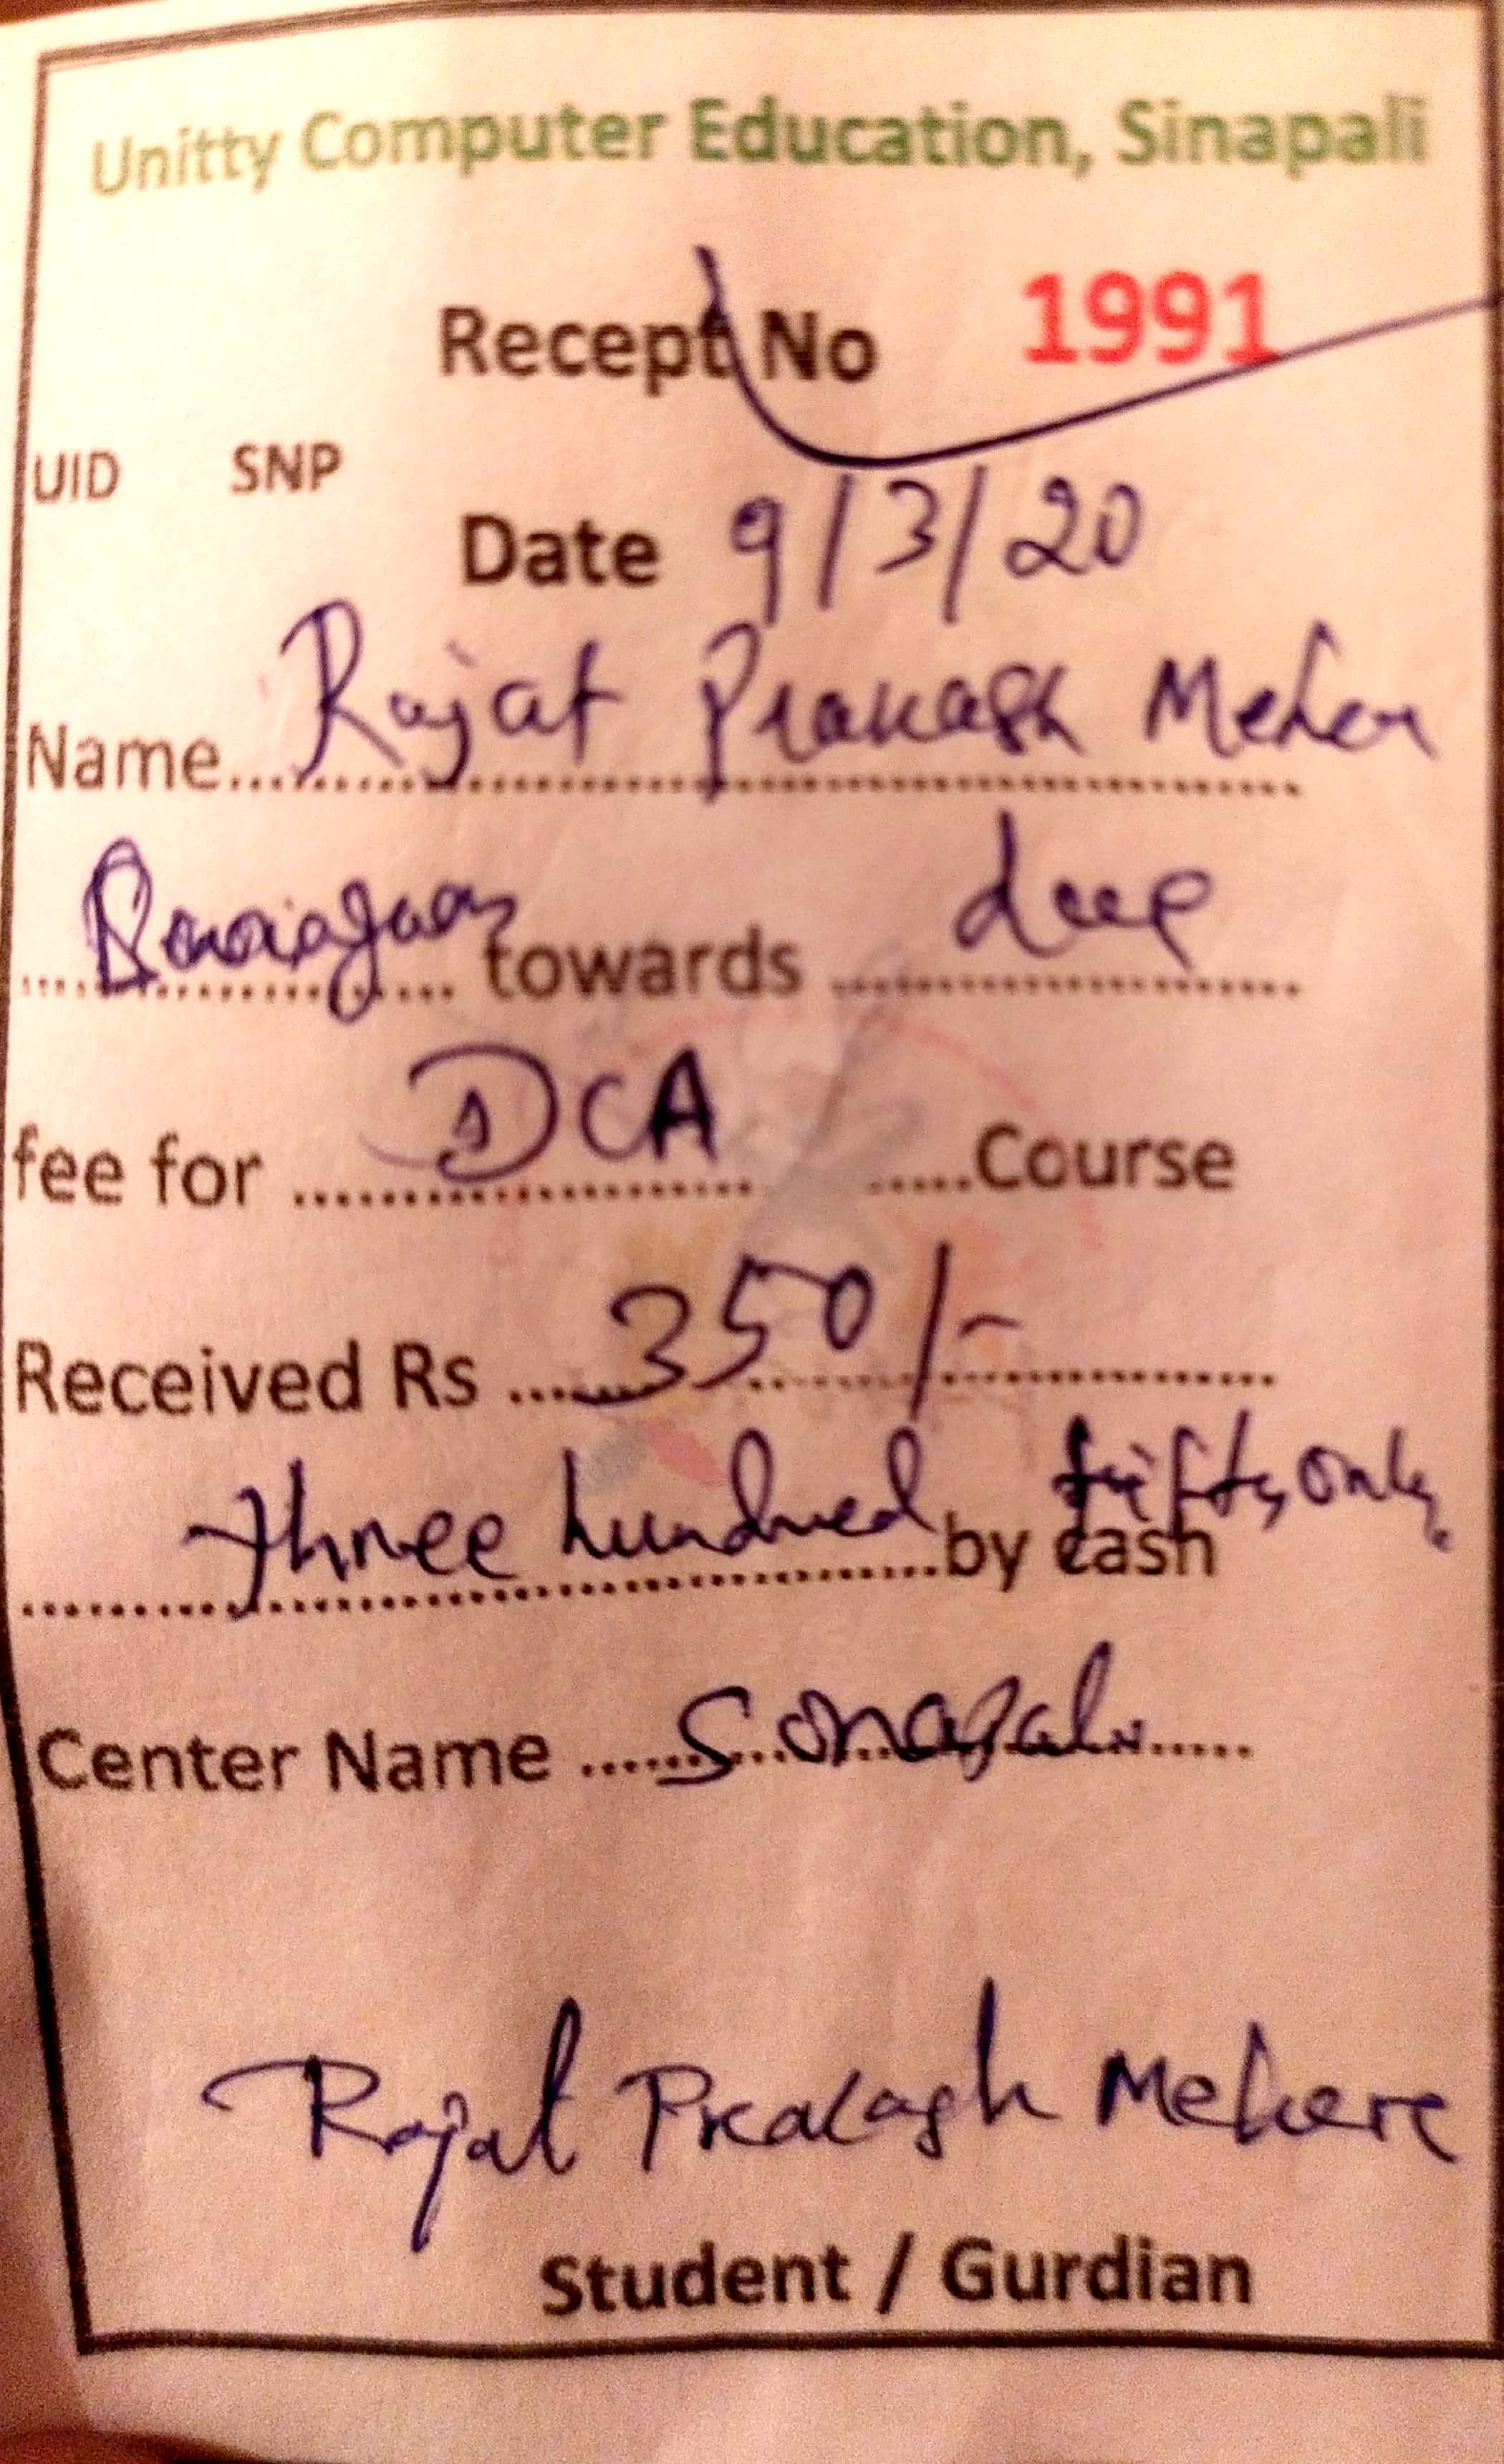 Unitty Computer Education, Sinapali
Recept No 1991
UID SNP
Date 9/3/20
Name... Rajat Prakash Meher
towards due
fee for DCA Course
Received Rs 350/-
three hundred fifty only
by cash
Center Name
Rajat Prakash Mehere
Student / Gurdian